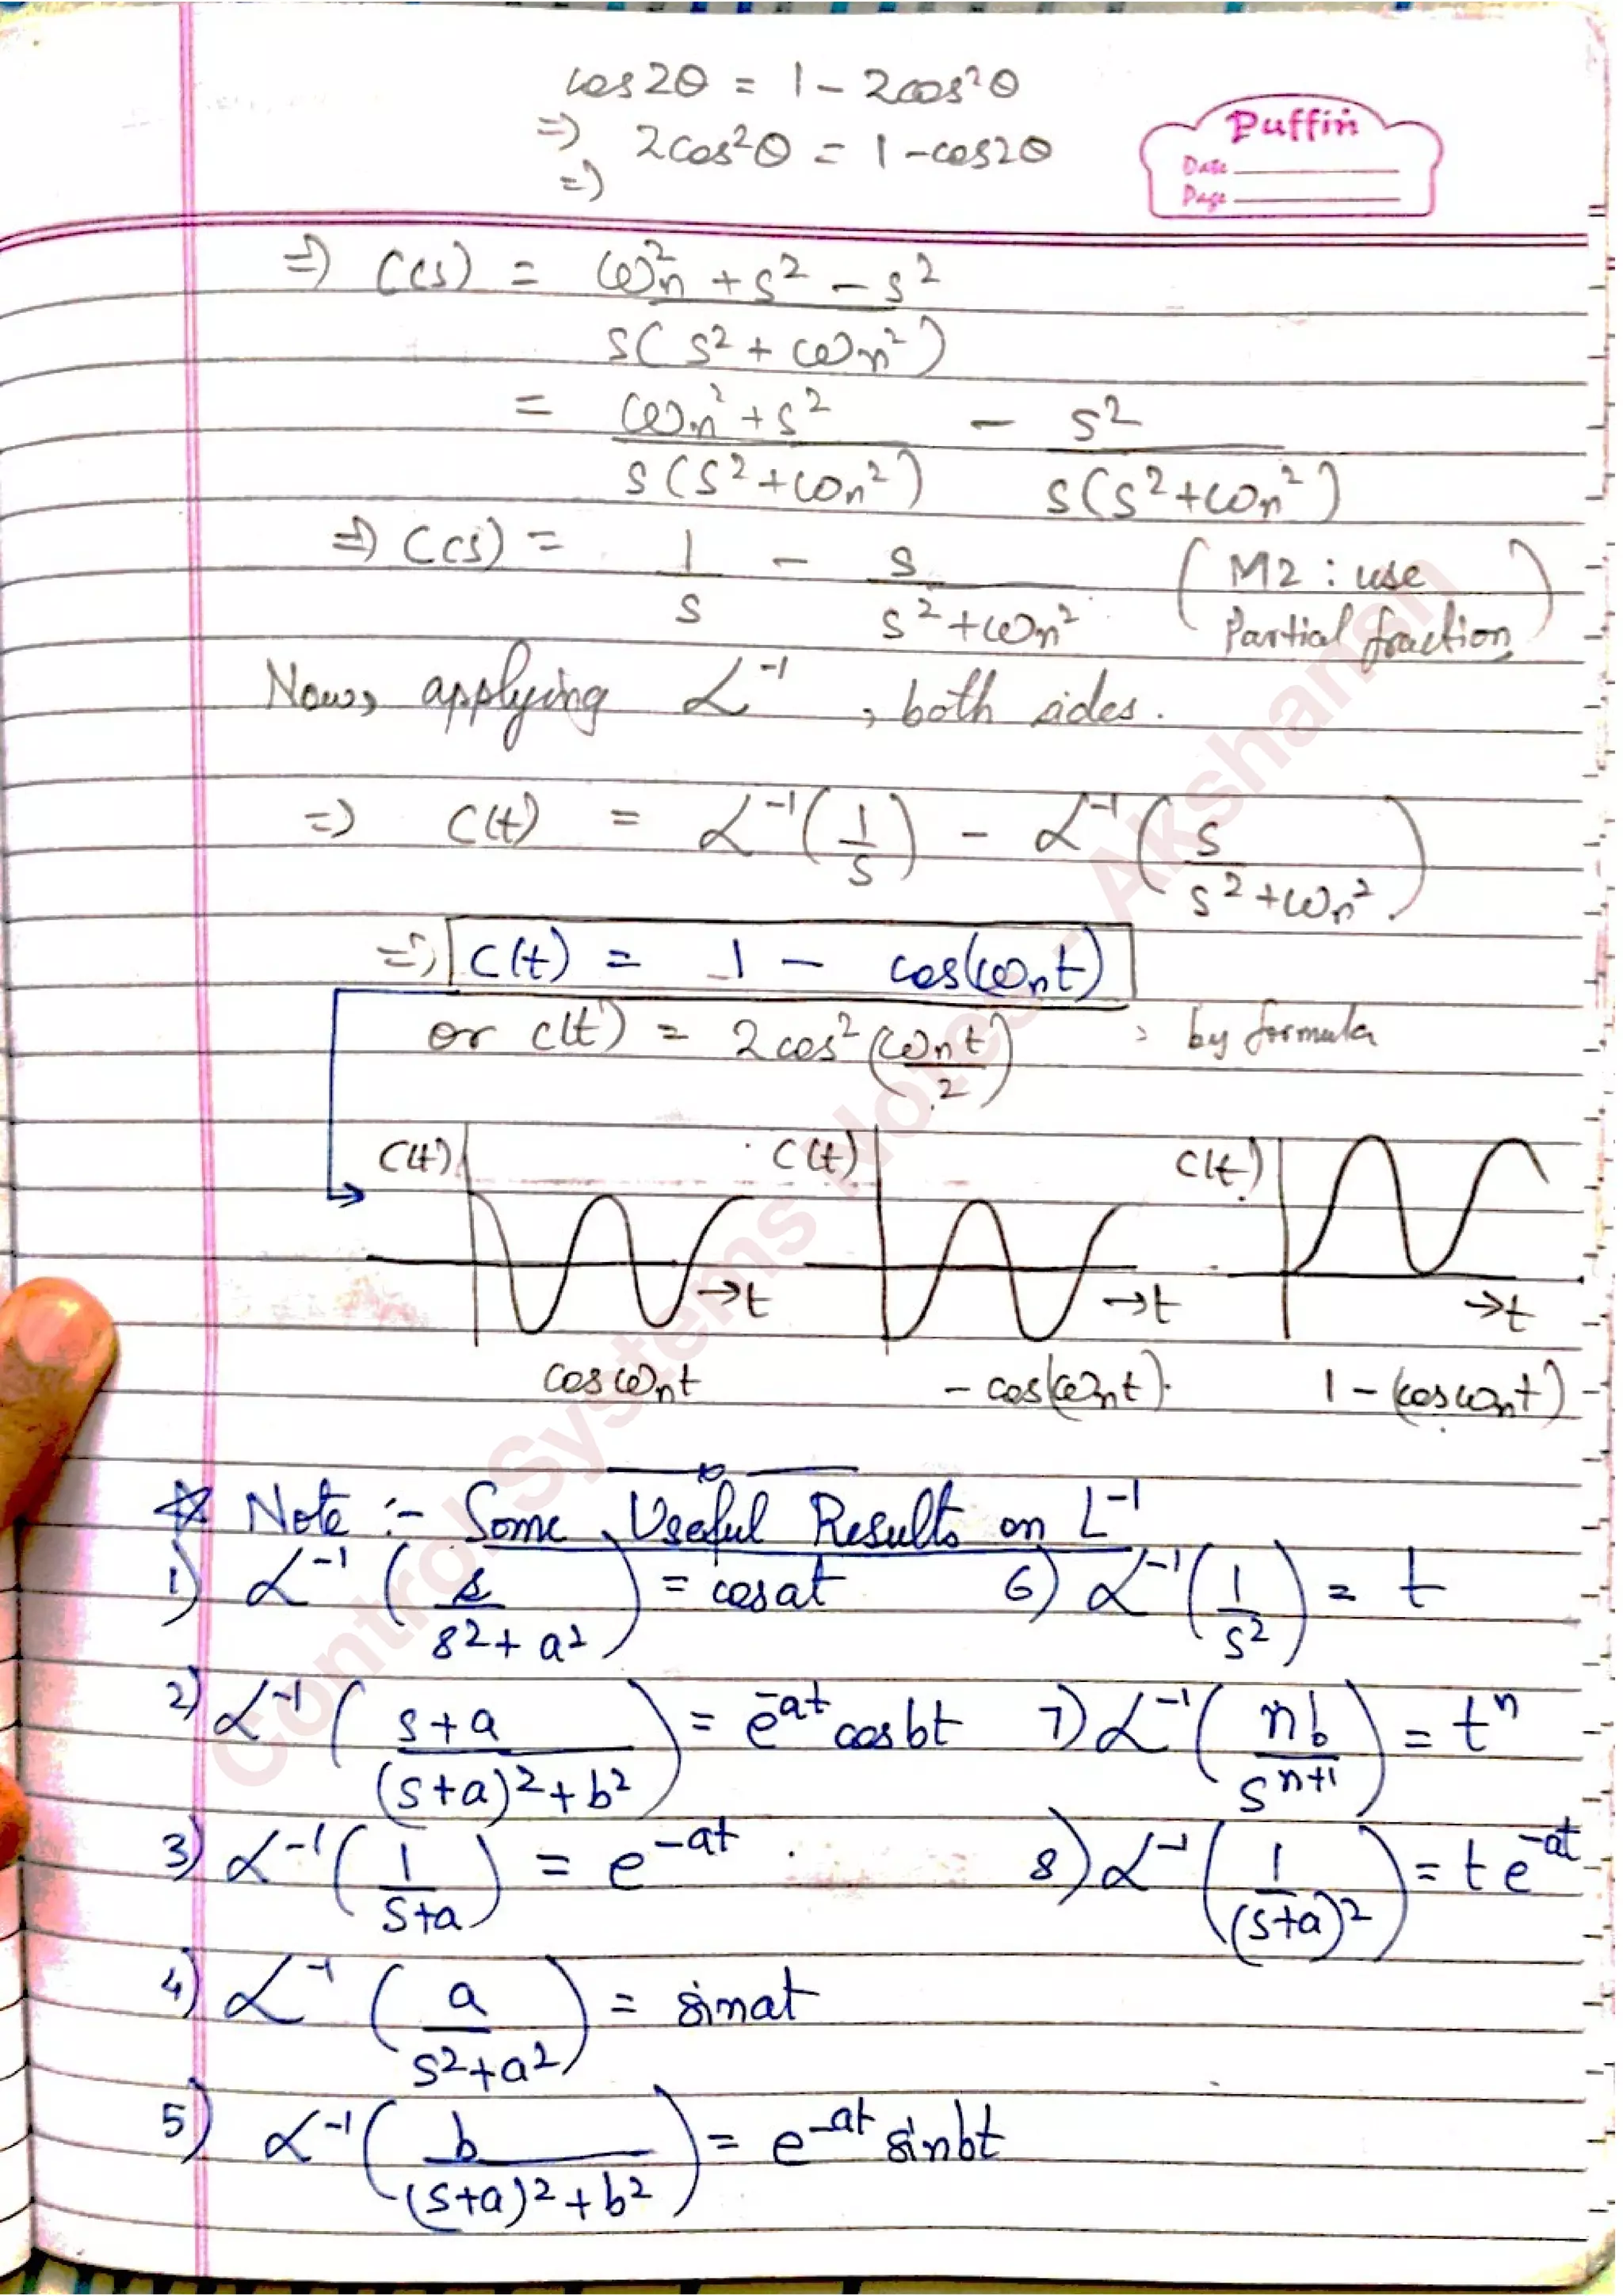 cos2θ = 1 - 2cos²θ
=> 2cos²θ = 1 - cos2θ
=>
Puffin
Date
Page
=> C(s) = ωn² + s² - s² / s(s² + ωn²)
= ωn² + s² / s(s² + ωn²) - s² / s(s² + ωn²)
=> C(s) = 1/s - s / s² + ωn² (M2 : use Partial fraction)
Now, applying L⁻¹, both sides.
=> C(t) = L⁻¹(1/s) - L⁻¹(s / s² + ωn²)
=> C(t) = 1 - cos(ωnt)
or c(t) = 2cos²(ωnt/2) , by formula
C(t) C(t) C(t)
→t →t →t
cosωnt - cos(ωnt). 1 - (cosωnt)
☆ Note :- Some Useful Results on L⁻¹
1) L⁻¹(s / s² + a²) = cosat 6) L⁻¹(1/s²) = t
2) L⁻¹(s+a / (s+a)² + b²) = e^-at cosbt 7) L⁻¹(nb / s^n+1) = tⁿ
3) L⁻¹(1 / s+a) = e^-at 8) L⁻¹(1 / (s+a)²) = t e^-at
4) L⁻¹(a / s² + a²) = sinat
5) L⁻¹(b / (s+a)² + b²) = e^-at sinbt
Control Systems Notes - Akshansh